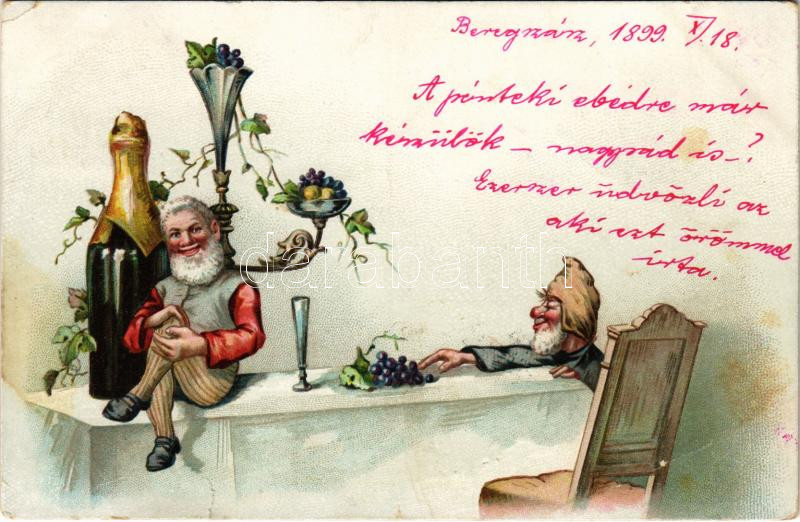 Beregszász, 1899. XI/18.
A pénteki ebédre már
készülök – nagyság is –?
Ezerszer üdvözli az
aki ezt örömmel
írta.
darabanth